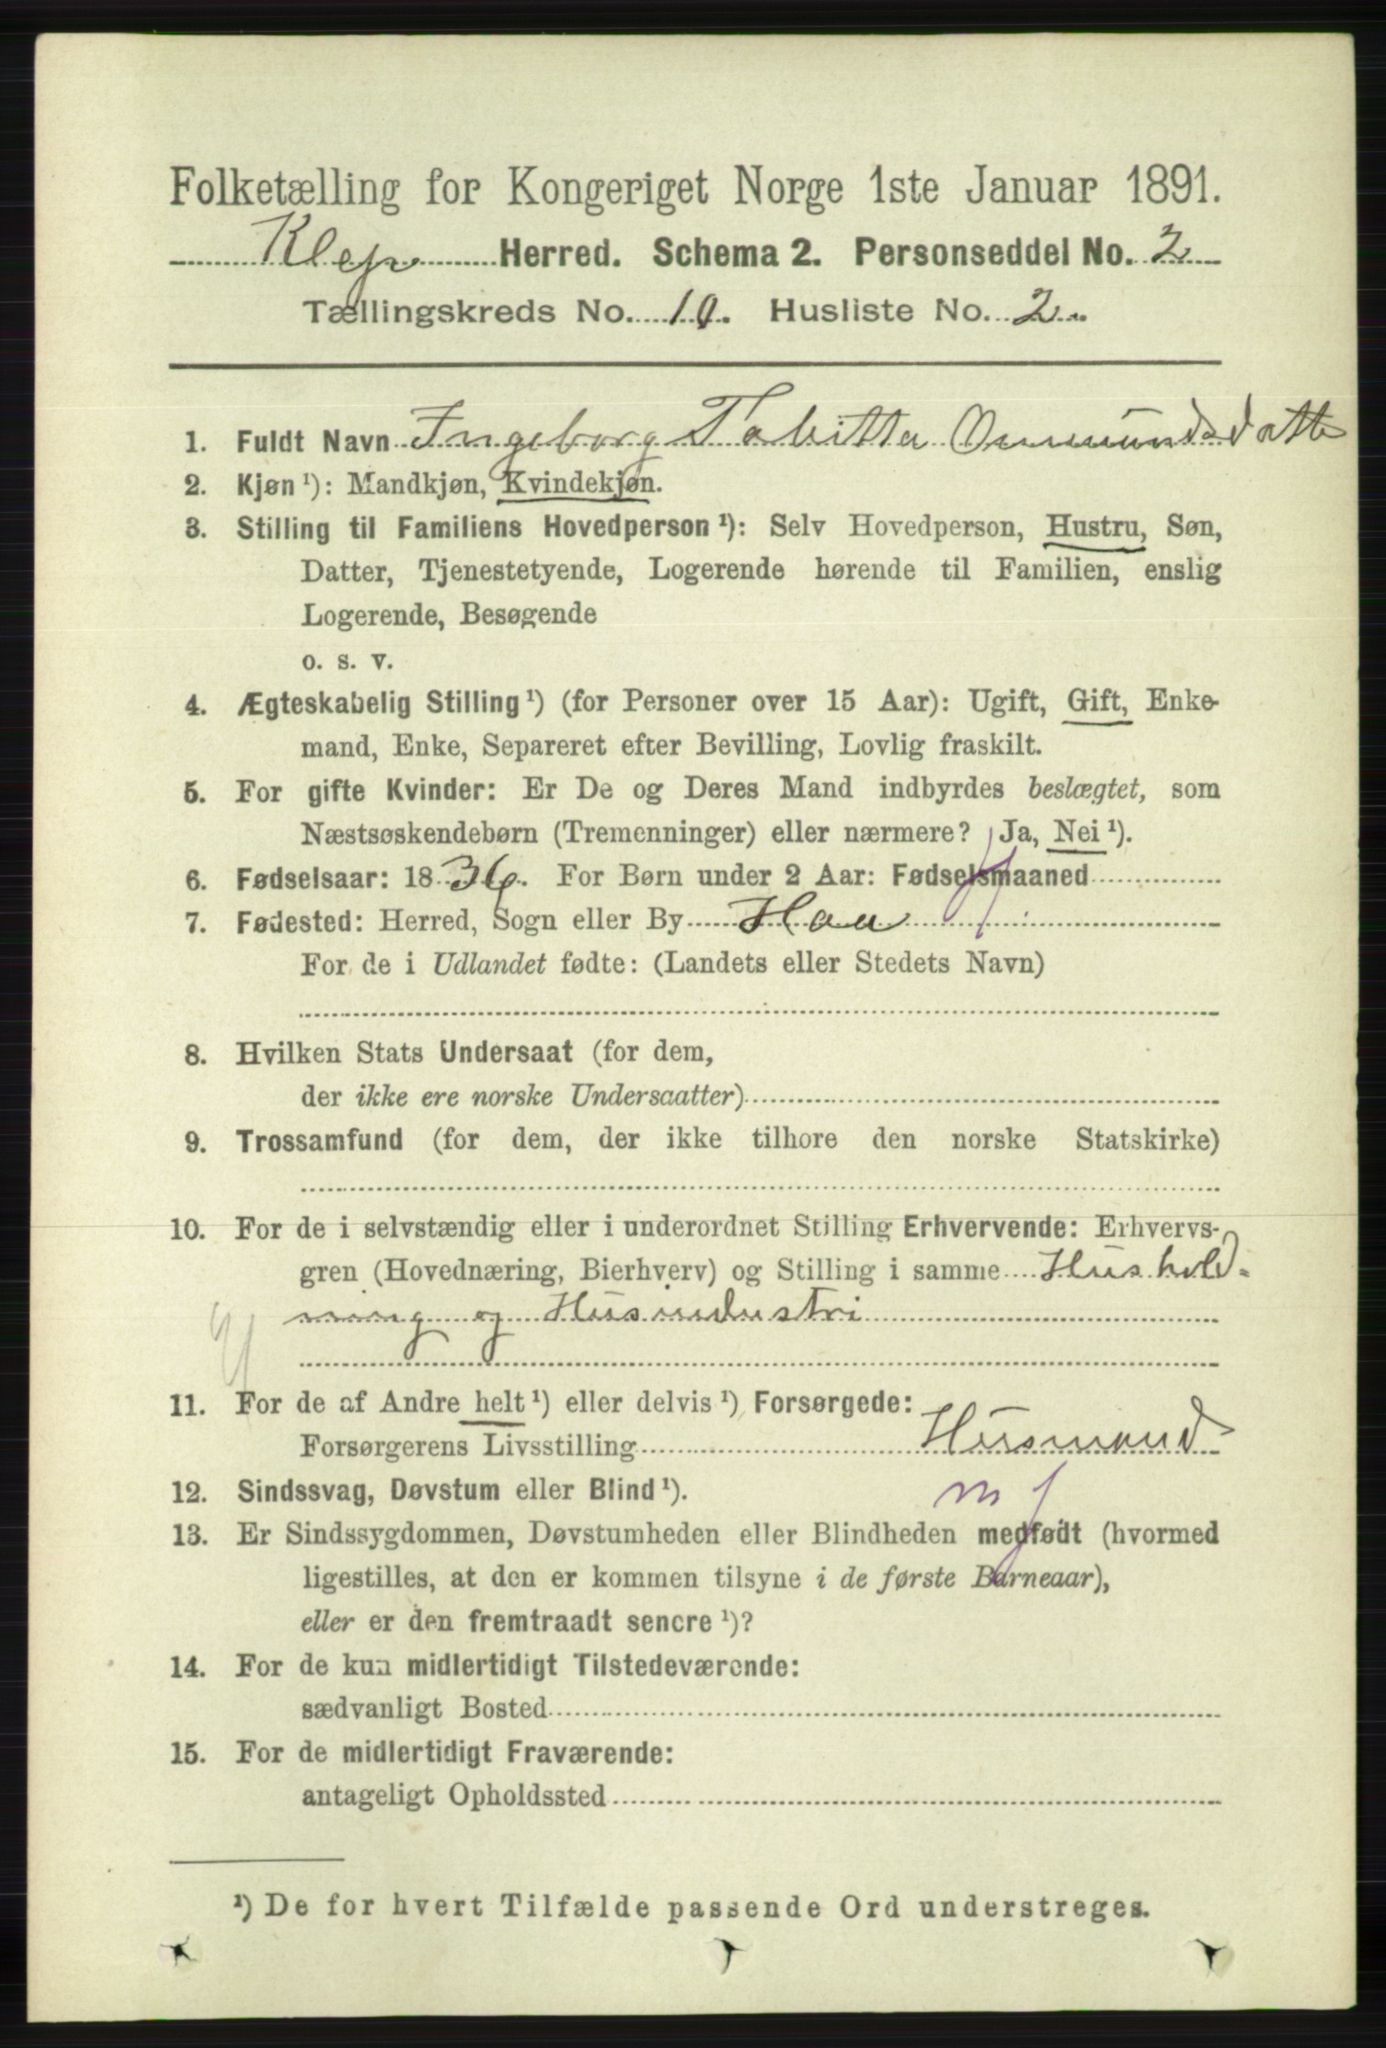 Folketælling for Kongeriget Norge 1ste Januar 1891.
Klep Herred. Schema 2. Personseddel No. 2
Tællingskreds No. 10. Husliste No. 2
1. Fuldt Navn Ingeborg Tabitta Ommundsdatte
2. Kjøn ¹): Mandkjøn, Kvindekjøn.
3. Stilling til Familiens Hovedperson ¹): Selv Hovedperson, Hustru, Søn,
Datter, Tjenestetyende, Logerende hørende til Familien, enslig
Logerende, Besøgende
o. s. v.
4. Ægteskabelig Stilling ¹) (for Personer over 15 Aar): Ugift, Gift, Enke-
mand, Enke, Separeret efter Bevilling, Lovlig fraskilt.
5. For gifte Kvinder: Er De og Deres Mand indbyrdes beslægtet, som
Næstsøskendebørn (Tremenninger) eller nærmere? Ja, Nei ¹).
6. Fødselsaar: 1836. For Børn under 2 Aar: Fødselsmaaned
7. Fødested: Herred, Sogn eller By Haa
For de i Udlandet fødte: (Landets eller Stedets Navn)
8. Hvilken Stats Undersaat (for dem,
der ikke ere norske Undersaatter)
9. Trossamfund (for dem, der ikke tilhøre den norske Statskirke)
10. For de i selvstændig eller i underordnet Stilling Erhvervende: Erhvervs-
gren (Hovednæring, Bierhverv) og Stilling i samme Hushold-
ning og Husindustri
11. For de af Andre helt ¹) eller delvis ¹) Forsørgede:
Forsørgerens Livsstilling Husmand
12. Sindssvag, Døvstum eller Blind ¹).
m
13. Er Sindssygdommen, Døvstumheden eller Blindheden medfødt (hvormed
ligestilles, at den er kommen tilsyne i de første Barneaar),
eller er den fremtraadt senere ¹)?
14. For de kun midlertidigt Tilstedeværende:
sædvanligt Bosted
15. For de midlertidigt Fraværende:
antageligt Opholdssted
¹) De for hvert Tilfælde passende Ord understreges.